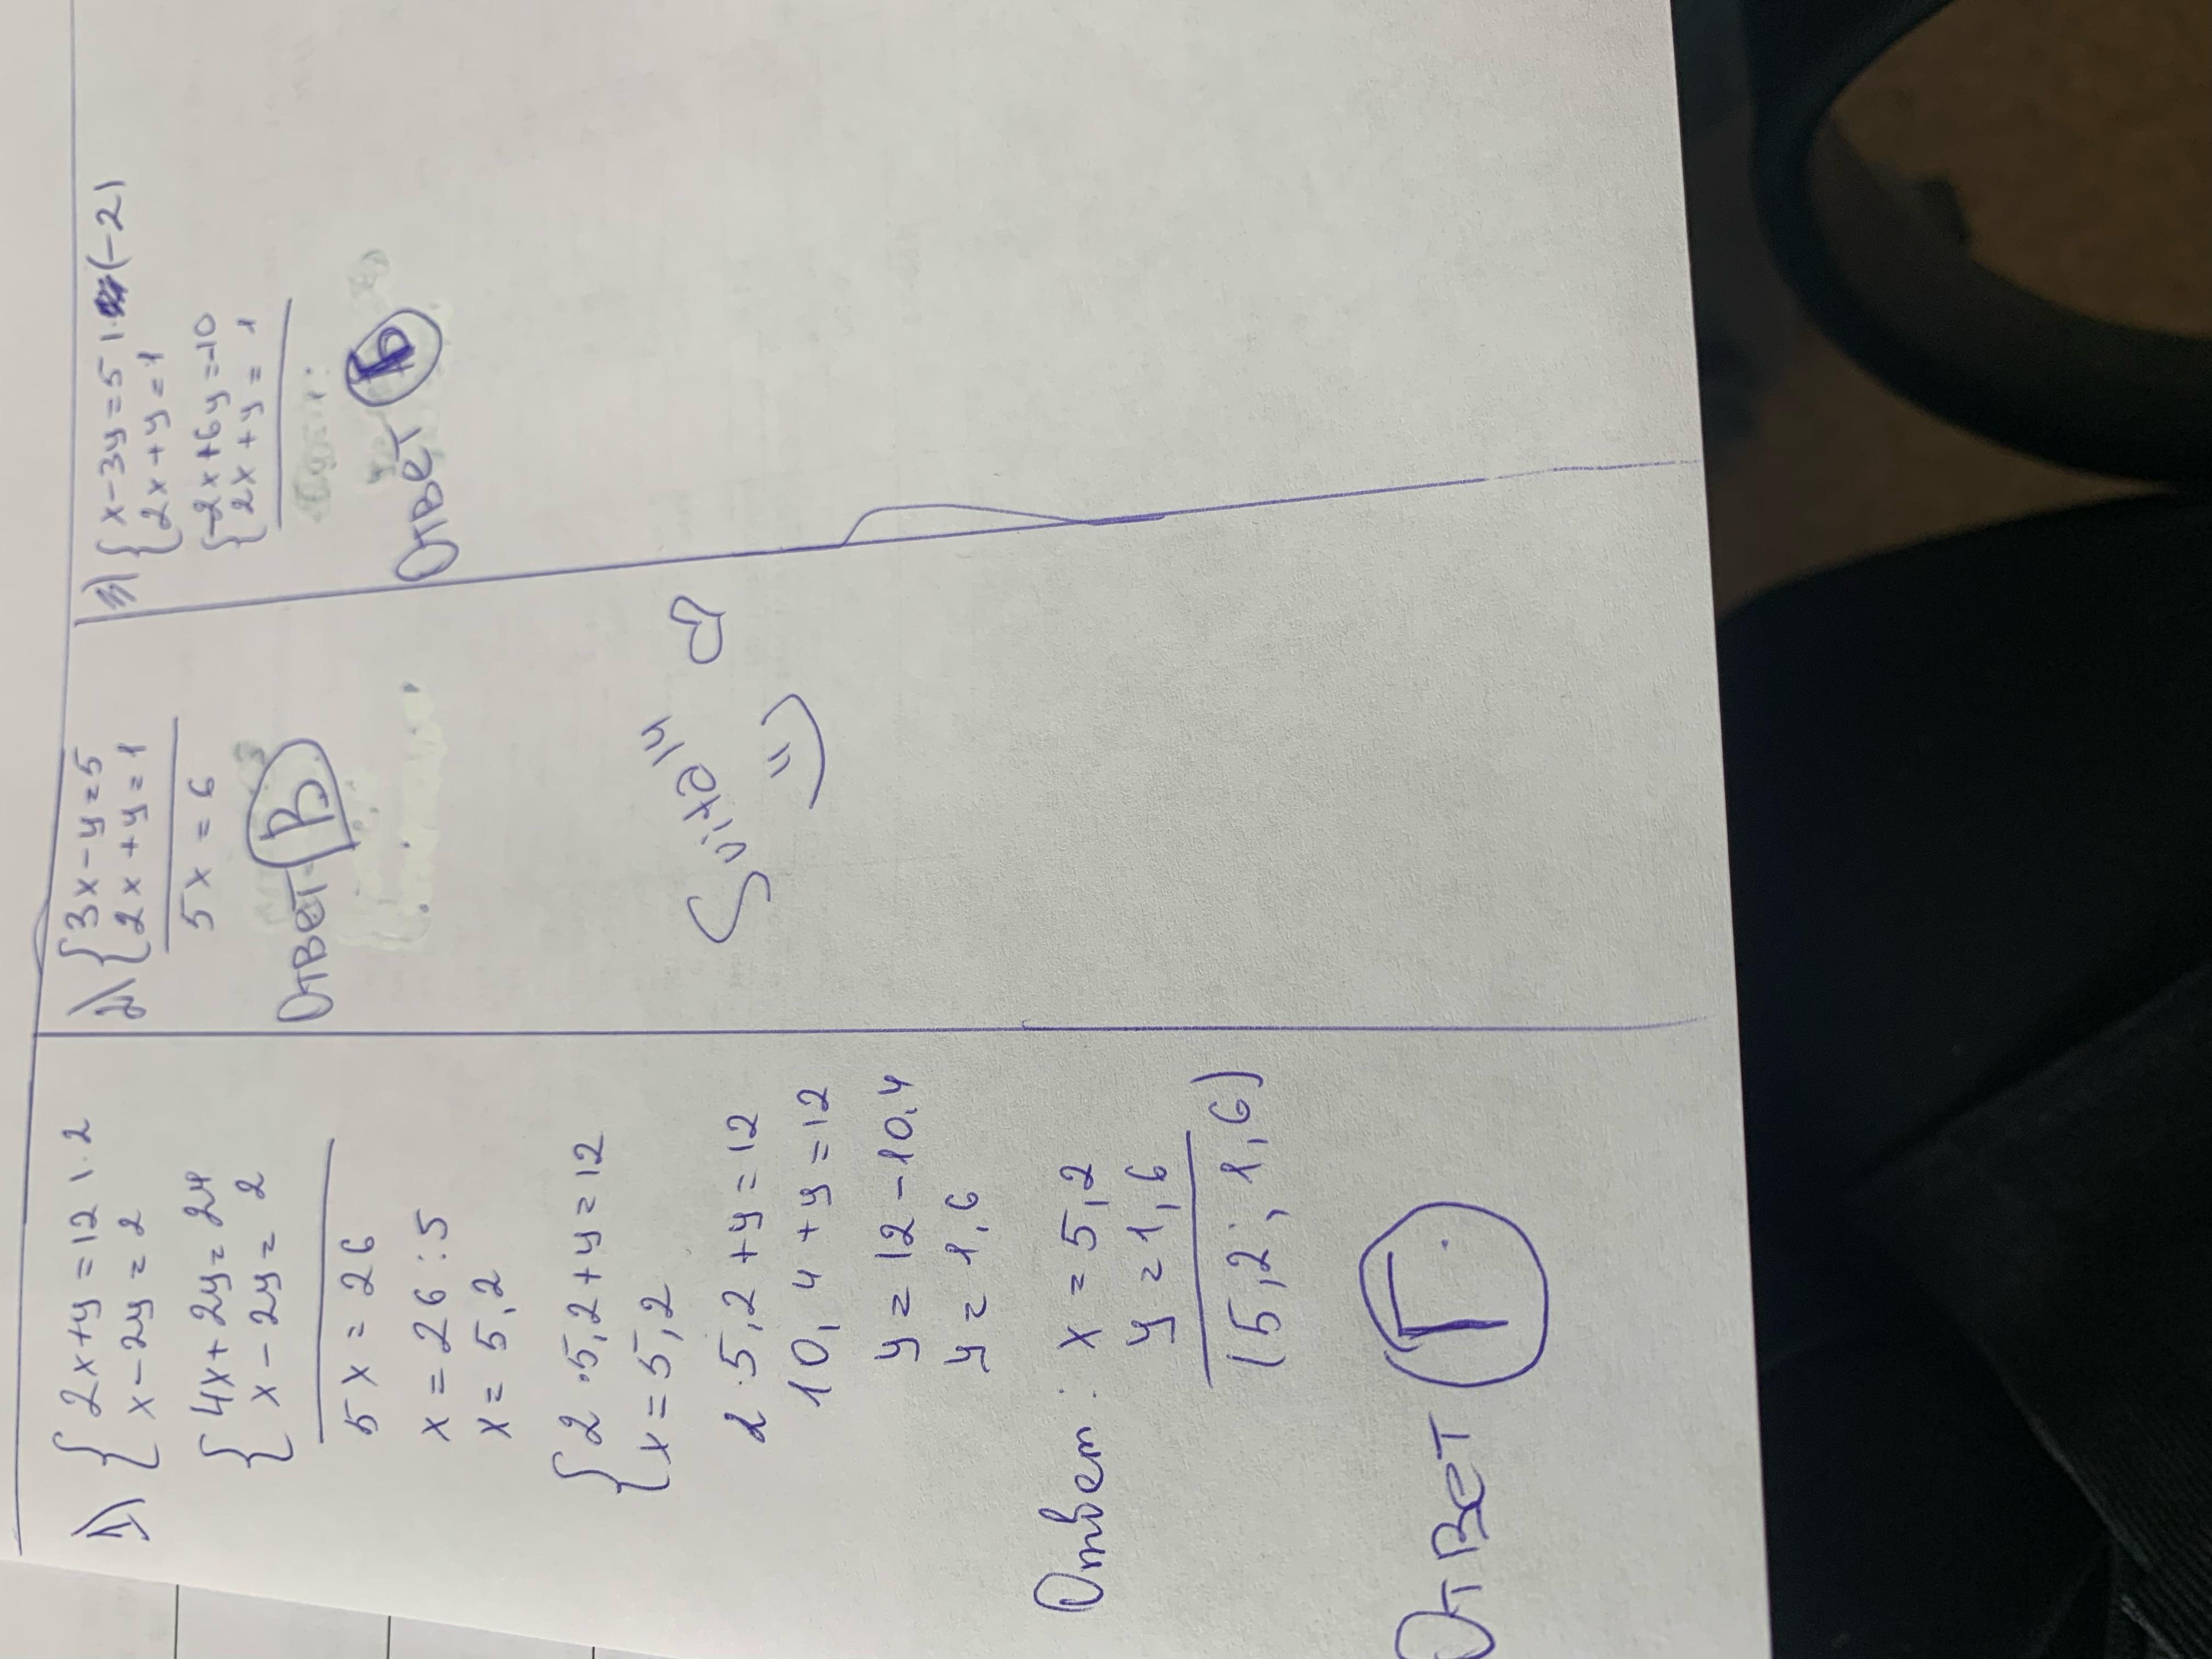 1) { 2x+y=12 | ·2
x-2y=2
{ 4x+2y=24
x-2y=2
5x=26
x=26:5
x=5,2
{ 2·5,2+y=12
x=5,2
2·5,2+y=12
10,4+y=12
y=12-10,4
y=1,6
Ответ: x=5,2
y=1,6
(5,2; 1,6)
ОТВЕТ Г.
2) { 3x-y=5
2x+y=1
5x=6
ОТВЕТ В.
3) { x-3y=5 | · (-2)
2x+y=1
{ -2x+6y=-10
2x+y=1
ОТВЕТ Б